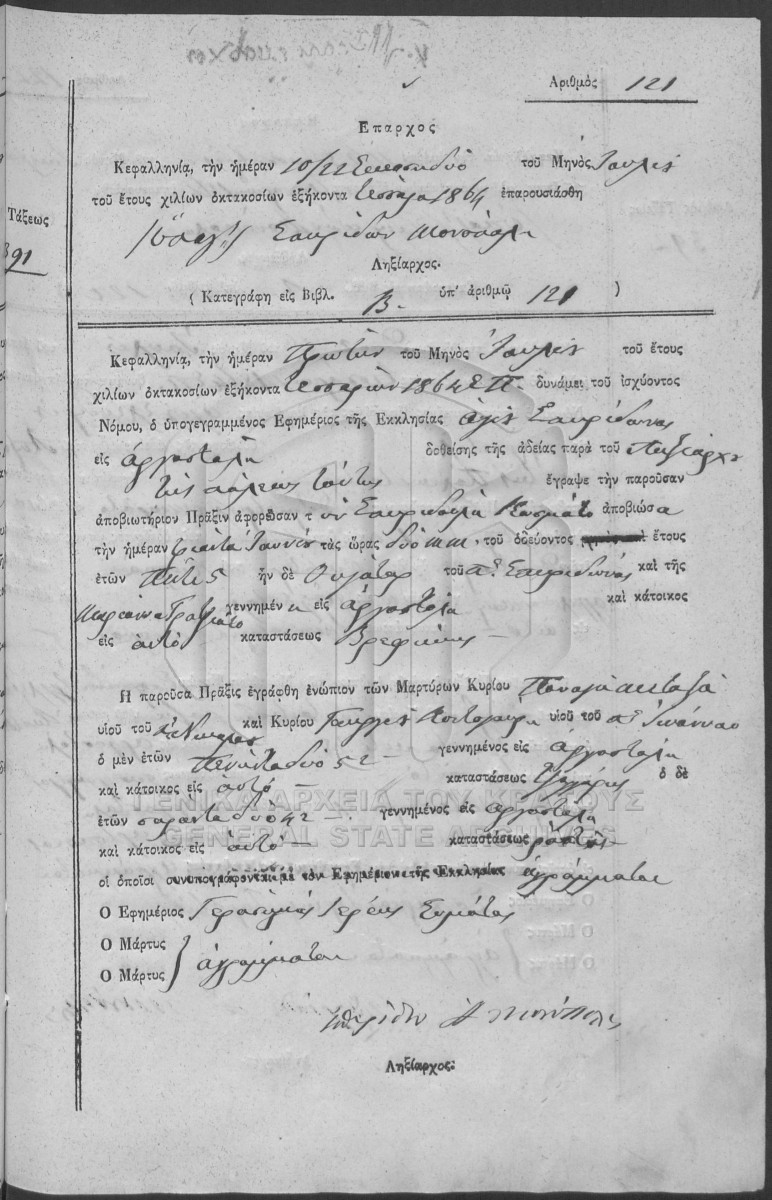 Ἀριθμὸς 121
ΕΠΑΡΧΟΣ
Κεφαλληνία, τὴν ἡμέραν 10/22 τοῦ Μηνὸς Ἰουλίου
τοῦ ἔτους χιλίων ὀκτακοσίων ἑξήκοντα τέσσαρα 1864 ἐπαρουσιάσθη
Τάξεως
391
Σπυρίδων
Ληξίαρχος.
( Κατεγράφη εἰς Βιβλ. Β. ὑπ' ἀριθμῷ 121 )
Κεφαλληνία, τὴν ἡμέραν Πρώτην τοῦ Μηνὸς Ἰουλίου τοῦ ἔτους
χιλίων ὀκτακοσίων ἑξήκοντα τεσσάρων 1864 Ε.Π. δυνάμει τοῦ ἰσχύοντος
Νόμου, ὁ ὑπογεγραμμένος Ἐφημέριος τῆς Ἐκκλησίας ἁγίου Σπυρίδωνος
εἰς Ἀργοστόλι δοθείσης τῆς ἀδείας παρὰ τοῦ Ληξιάρχου
τῆς πόλεως ταύτης ἔγραψε τὴν παροῦσαν
ἀποβιωτήριον Πρᾶξιν ἀφορῶσαν τὴν Σπυριδούλα Κοσμάτο ἀποβιώσα
τὴν ἡμέραν τριάντα Ἰουνίου τὰς ὥρας δύο μμ. τοῦ ὁδεύοντος ἔτους
ἐτῶν πέντε 5 ἦν δὲ θυγάτηρ τοῦ π. Σπυρίδωνος καὶ τῆς
γεννημένη εἰς Ἀργοστόλι καὶ κάτοικος
εἰς αὐτό καταστάσεως Βρεφικῆς
Ἡ παροῦσα Πρᾶξις ἐγράφθη ἐνώπιον τῶν Μαρτύρων Κυρίου Παναγῆ Μεταξᾶ
υἱοῦ τοῦ καὶ Κυρίου Γεωργίου υἱοῦ τοῦ π. Ἰωάννου
ὁ μὲν ἐτῶν πενήντα δύο 52 γεννημένος εἰς Ἀργοστόλι
καὶ κάτοικος εἰς αὐτό καταστάσεως ὁ δὲ
ἐτῶν σαράντα δύο 42 γεννημένος εἰς Ἀργοστόλι
καὶ κάτοικος εἰς αὐτό καταστάσεως ράπτης
οἱ ὁποῖοι συνυπογράφονται μὲ τὸν Ἐφημέριον τῆς Ἐκκλησίας ἀγράμματοι
Ὁ Ἐφημέριος Γεράσιμος Ἱερεὺς
Ὁ Μάρτυς
Ὁ Μάρτυς } ἀγράμματοι
Ληξίαρχος.
ΓΕΝΙΚΑ ΑΡΧΕΙΑ ΤΟΥ ΚΡΑΤΟΥΣ
GENERAL STATE ARCHIVES